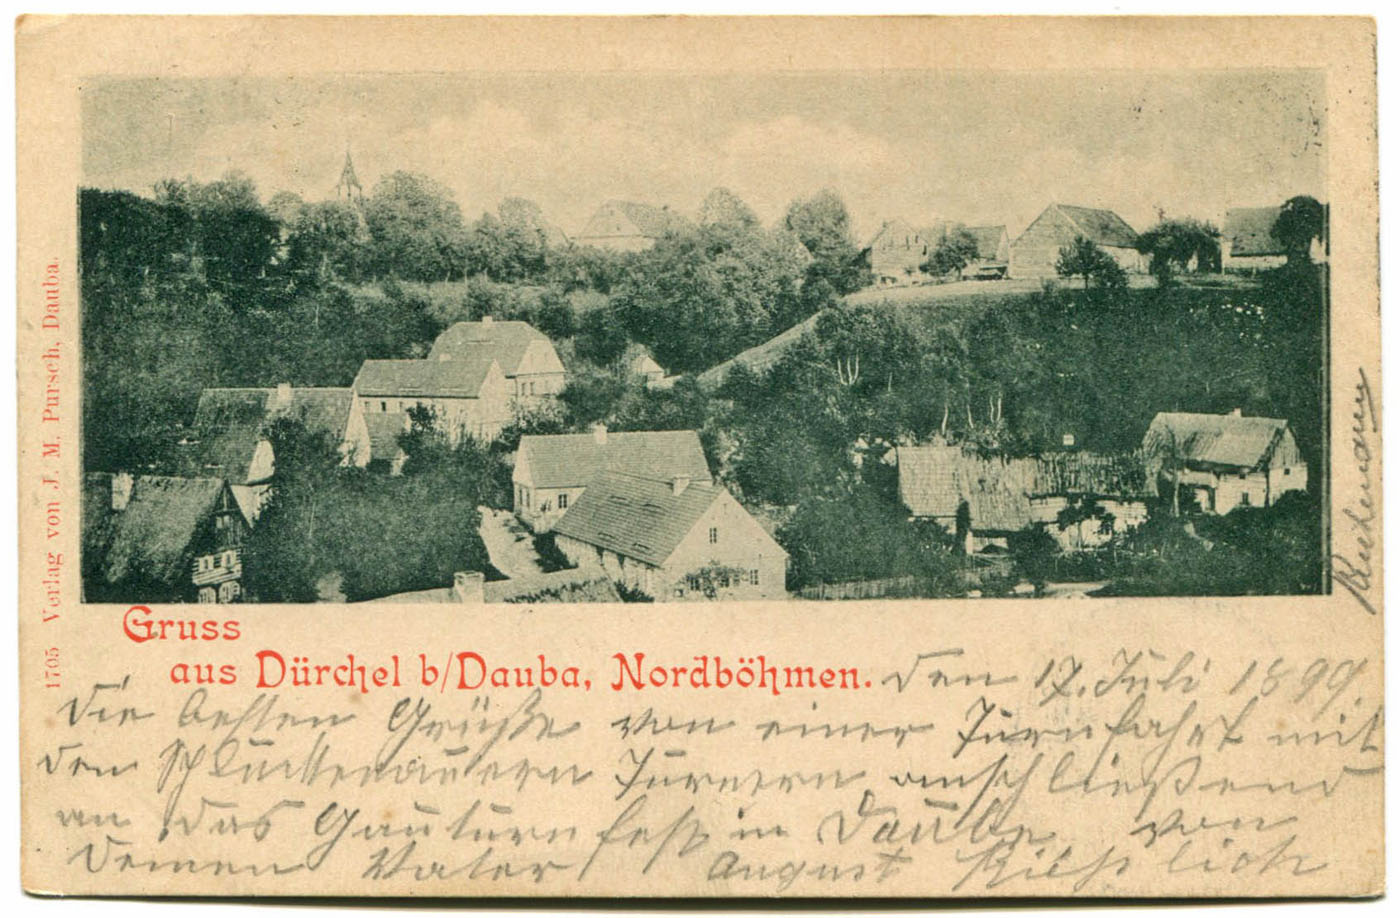 Gruss
aus Dürchel b/Dauba, Nordböhmen. den 17. Juli 1899.
Die besten Grüße von einer Turnfahrt mit
den Schluckenauern Turnern anschließend
an das Gauturnfest in Dauba von
deinem Vater August
1705 Verlag von J. M. Pursch, Dauba.